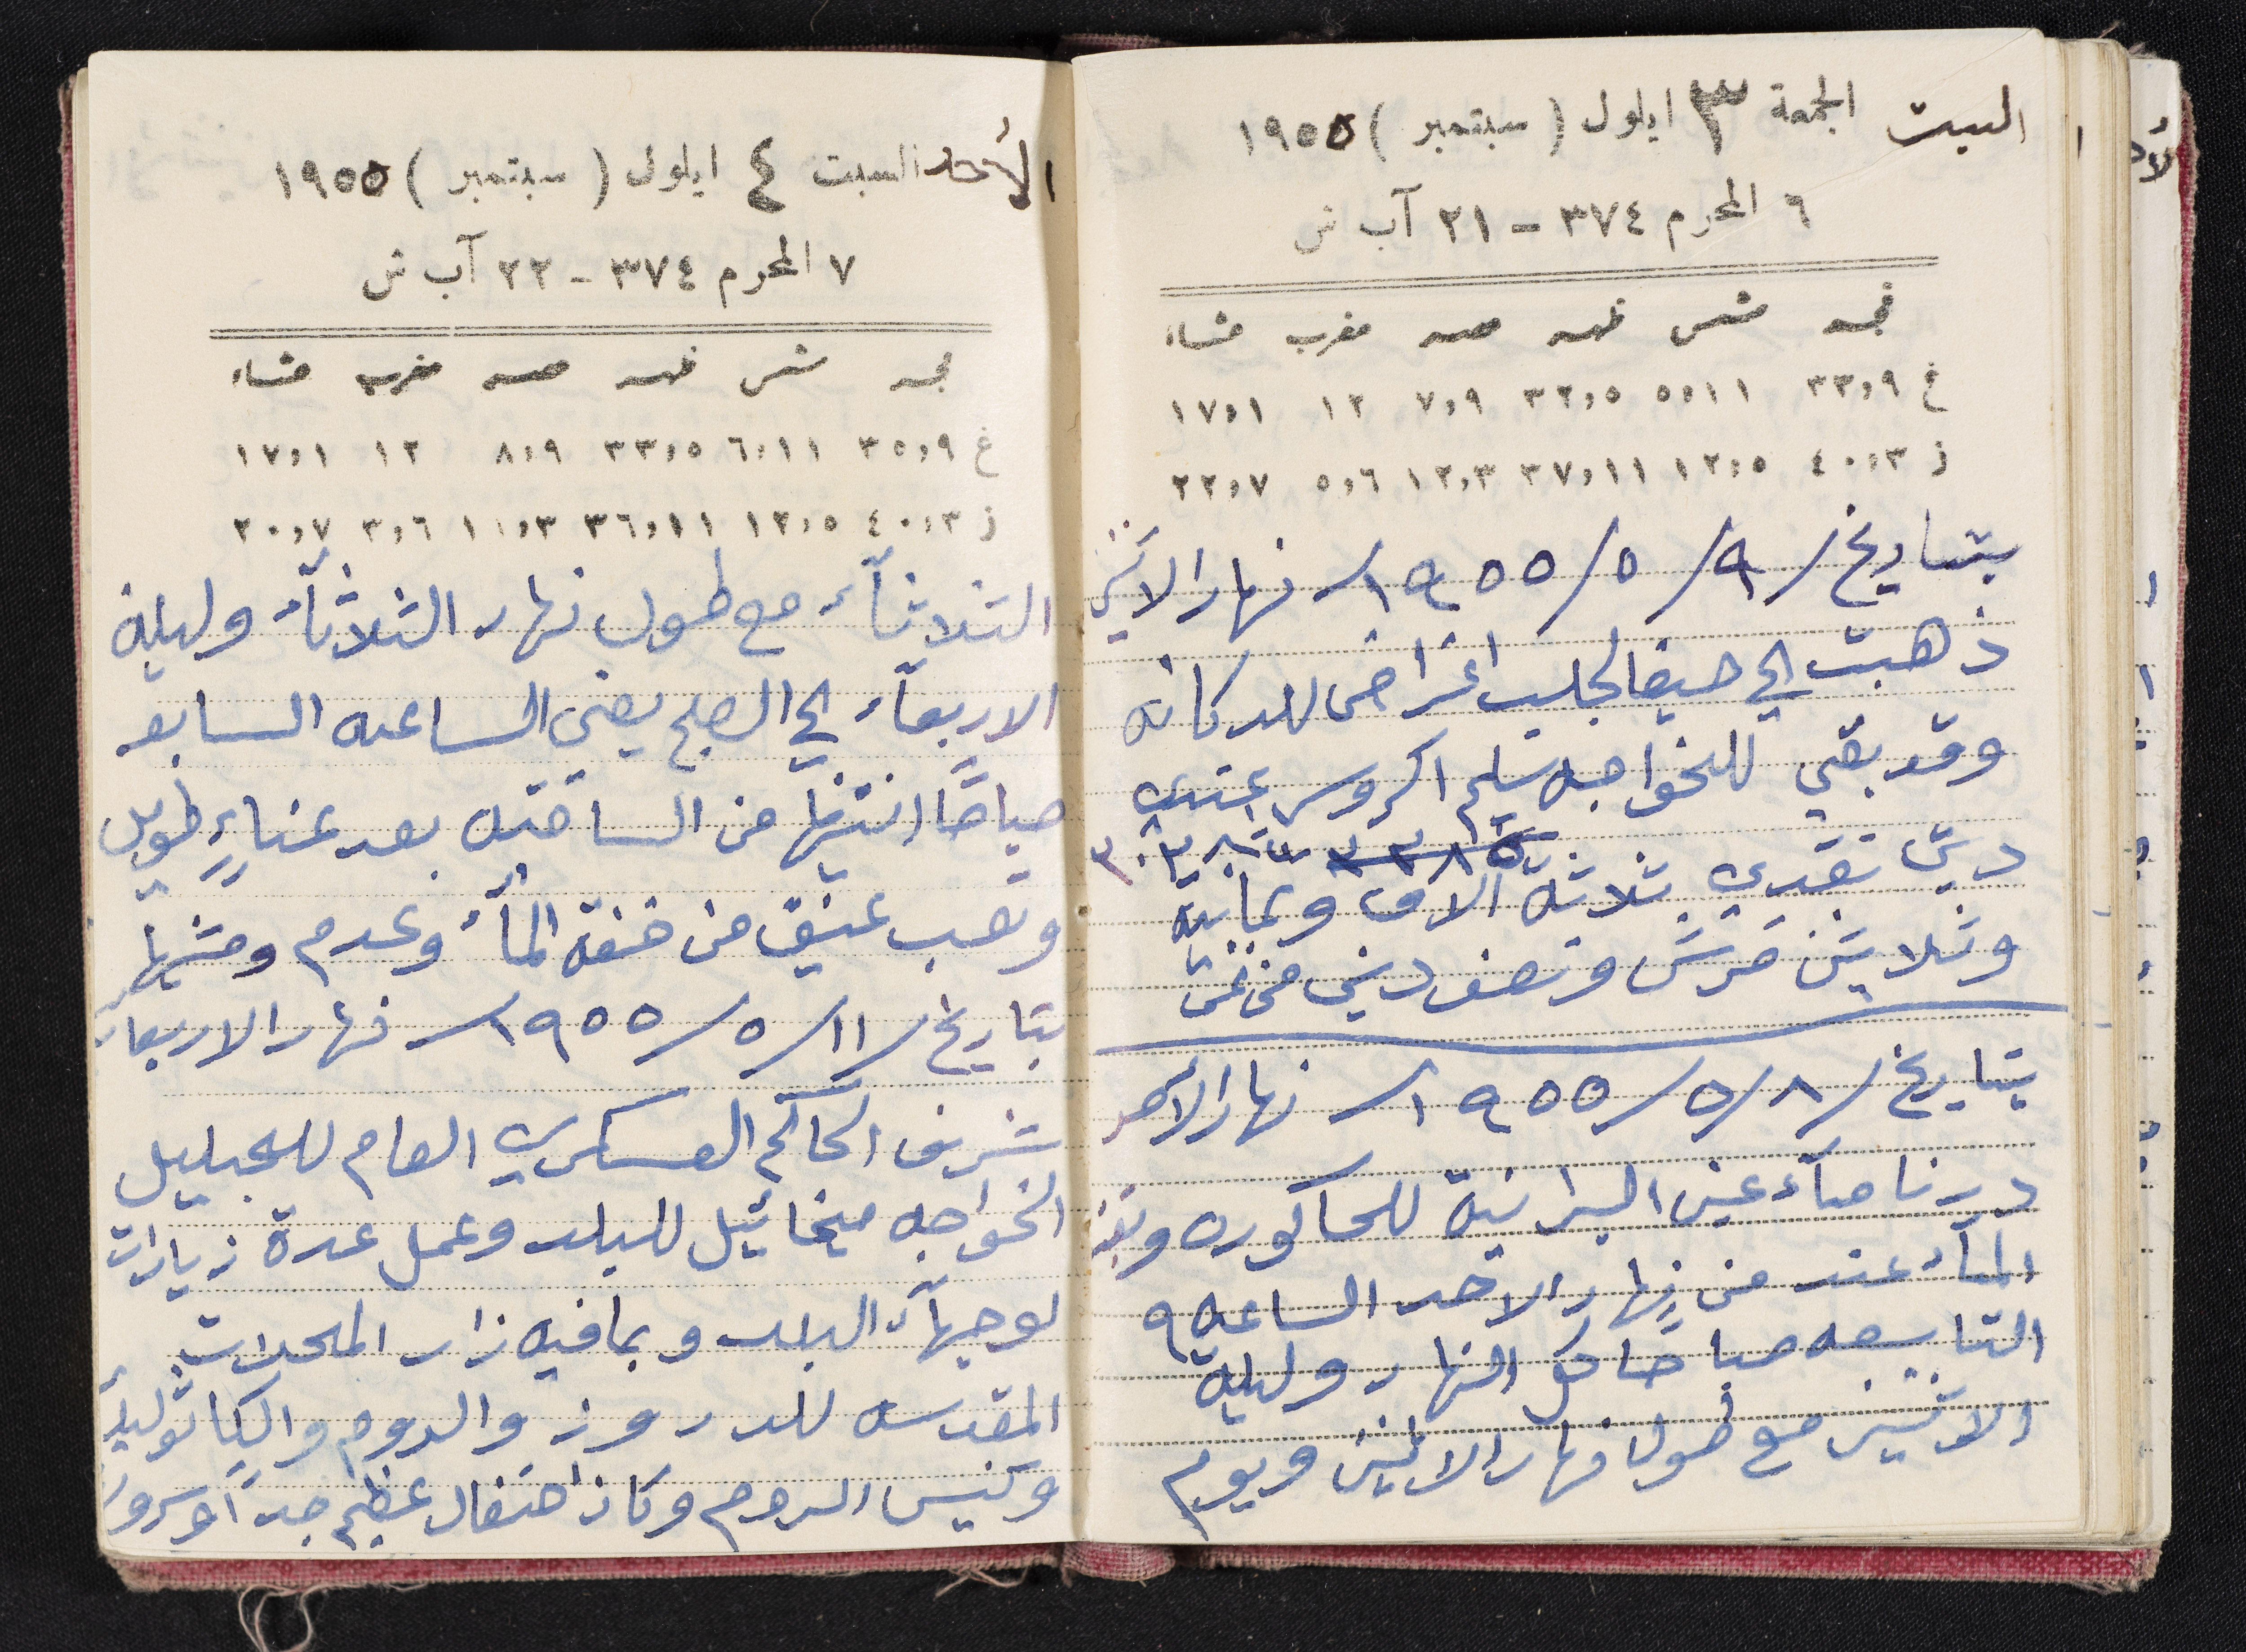 السبت الجمعة ٣ ايلول ( سبتمبر ) ١٩٥٥
٦ المحرم ٣٧٤ - ٢١ آب ش
فجر شمس ظهر عصر مغرب عشاء
غ ٣٣،٩ ٥،١١ ٣٢،٥ ٧،٩ ١٢ ١٧،١
ز ٤٠،٣ ١٢،٥ ٣٧،١١ ١٢،٣ ٥،٦ ٢٢،٧
بتاريخ /٩/٥/١٩٥٥/ نهار الاثنين
ذهبت الى حيفا لجلب اغراض للدكانه
وقد بقي للخواجه سليم اكروس عندي
دين نقدي ثلاثة الاف وثمانية
وثلاثين قرش ونصف ديني من
بتاريخ /٨/٥/١٩٥٥/ نهار الاحد
درنا مآء عين البرانية للحاكوره
المآء عند من نهار الاحد الساعه ٩
التاسعه صباحًا كل النهار وليلة
الاثنين مع طول نهار الاثنين ويوم
الأحد السبت ٤ ايلول ( سبتمبر ) ١٩٥٥
٧ المحرم ٣٧٤ - ٢٢ آب ش
فجر شمس ظهر عصر مغرب عشاء
غ ٣٥،٩ ٦،١١ ٣٣،٥ ٨،٩ ١٢ ١٧،١
ز ٤٠،٣ ١٢،٥ ٣٦،١١ ١١،٣ ٣،٦ ٢٠،٧
الثلاثآء مع طول نهار الثلاثآء وليلة
الاربعآء الى الصبح يعني الساعه السابعه
صباحًا انتهينا من الساقيه بعد عناءٍ طويل
وتعب عنيف من خفة المآء وعدم
بتاريخ /١١/٥/١٩٥٥/ نهار الاربعآء
شريف الحاكم العسكري العام للجليل
الخواجه ميخائيل للبلد وعمل عدة زيارات
لوجهآء البلد وبما فيه زار المحلات
المقدسه للدروز والروم والكاثوليك
وكنيس الروم وكان احتفال عظيم جدًا وسرور